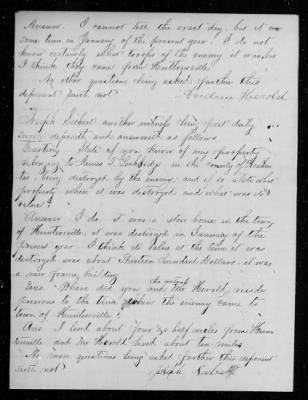 Answer. I cannot tell the exact day, but it was
some time in January of the present year. I do not
know certainly what troops of the enemy it was, but
I think they came from Huttonsville.
No other question being asked further this
deponent saith not. Andrew Herold
Joseph another witness being first duly
sworn deposeth and answereth as follows
Question State if you know of any property
belonging to James T. Lockridge in the county of
being destroyed by the enemy, and if so state what
property when it was destroyed and what was its
value?
Answer I do. it was a store house in the town
of Huntersville; it was destroyed in January of the
present year I think its value at the time it was
destroyed was about Thirteen Hundred Dollars. it was
a new frame building
Ques Where did you and the witness Mr Herold, reside
previous to the time when the enemy came to
town of Huntersville?
Ans I lived about four & a half miles from Hun
tersville and Mr Herold lived about ten miles
No more questions being asked further this deponent
saith not Joseph